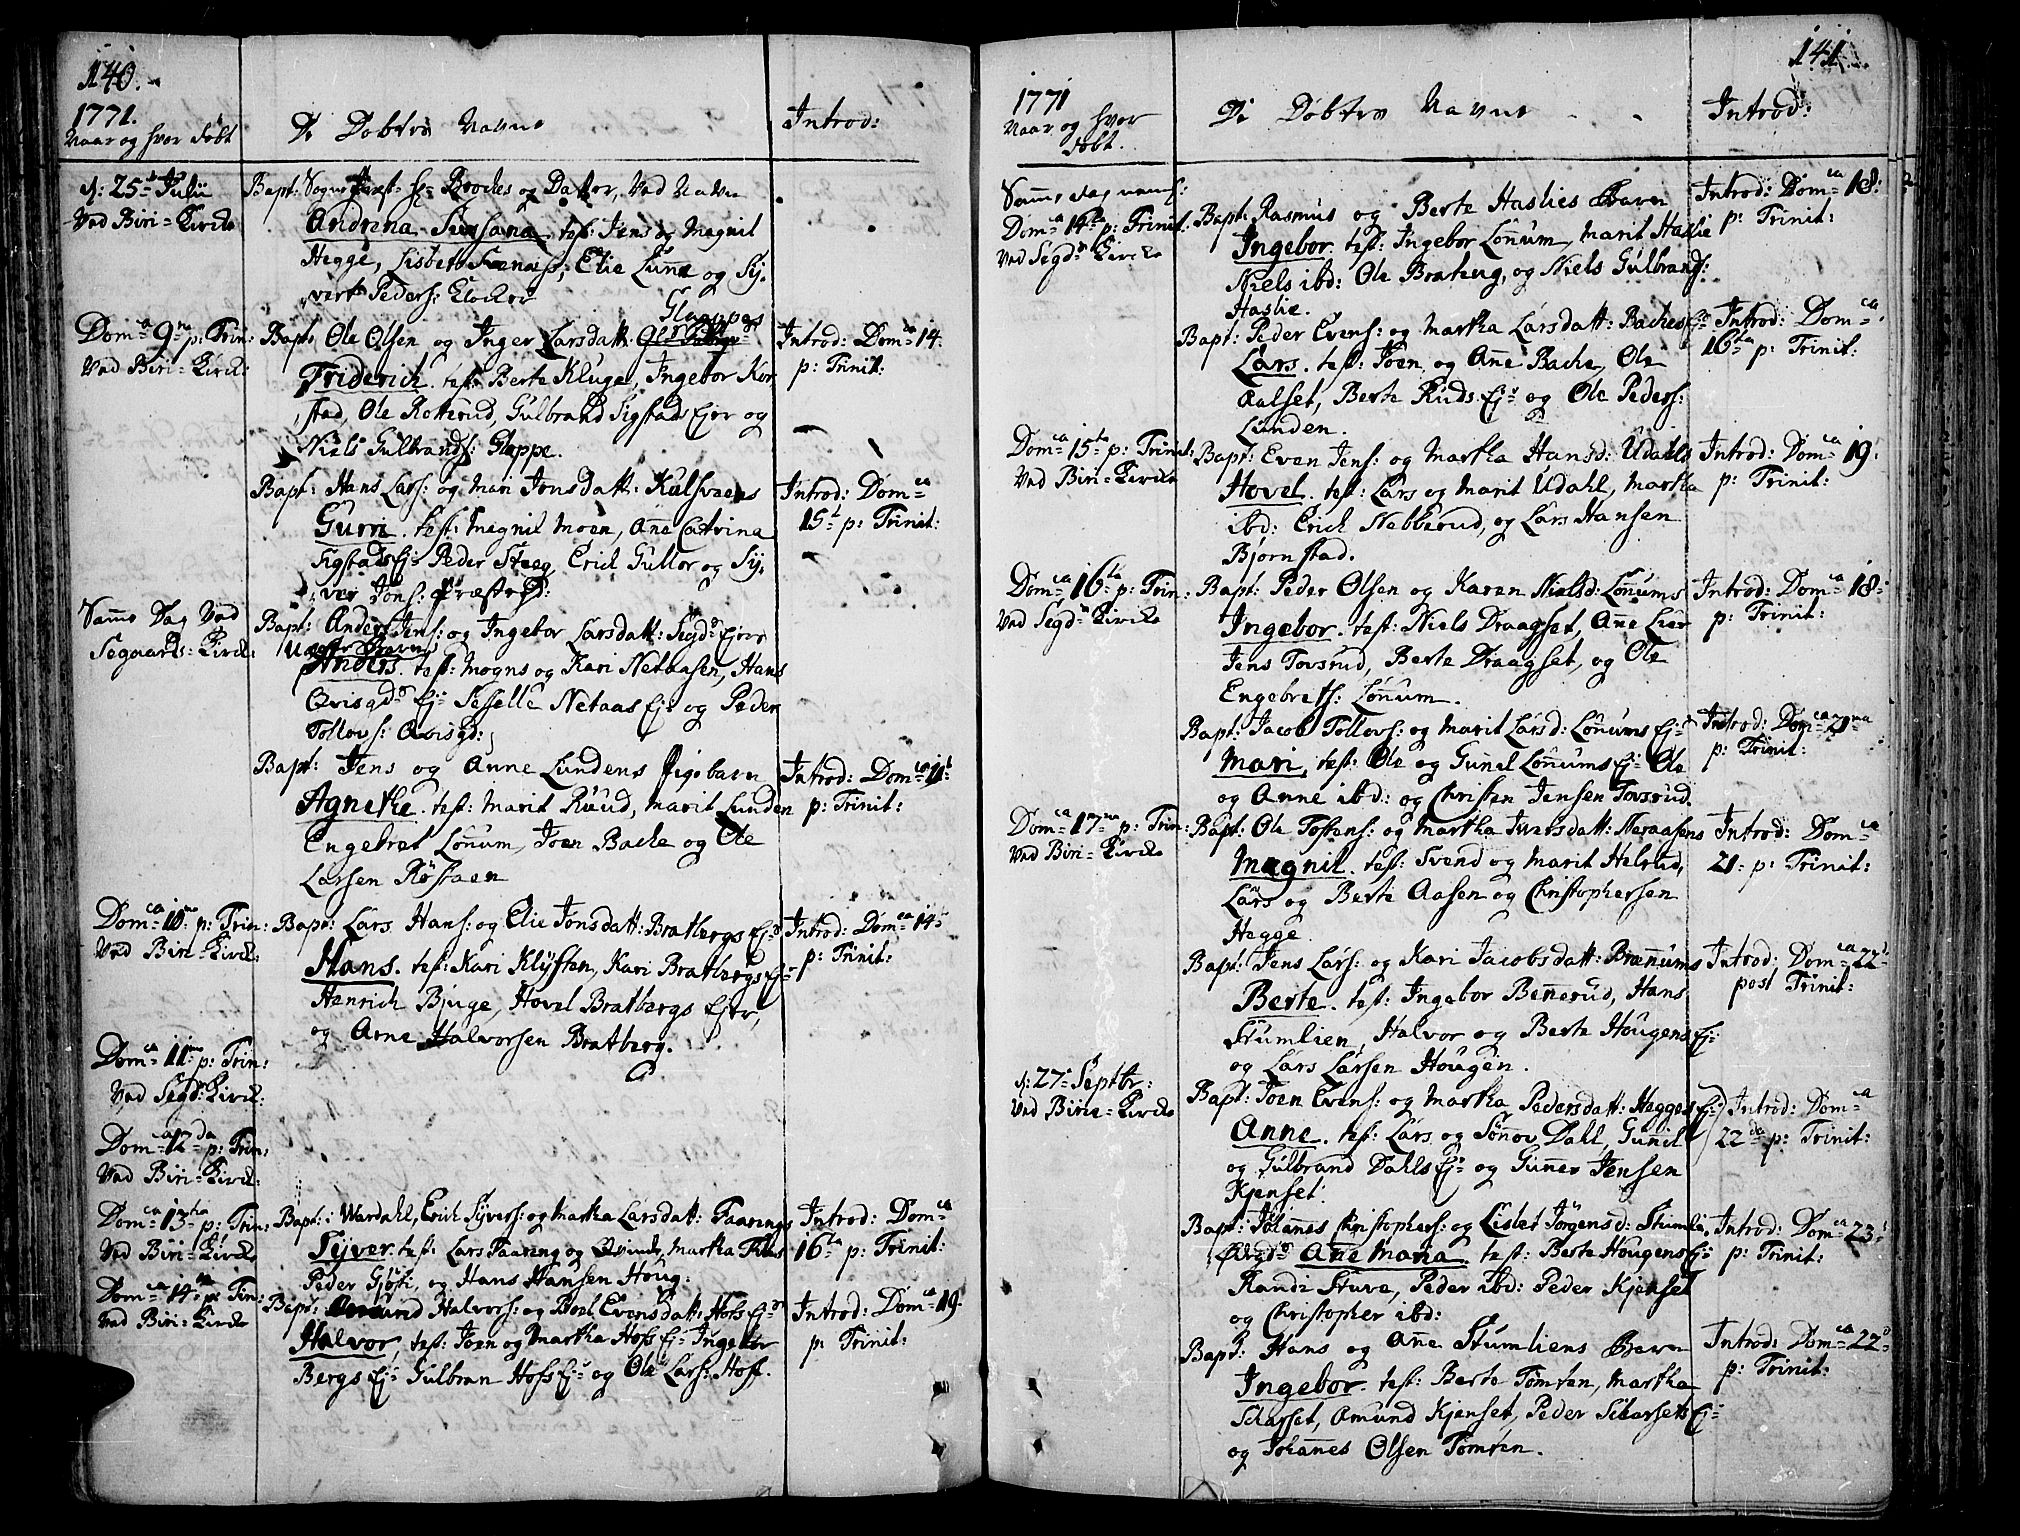 140.
1771.
Naar og hvor døbt
De Døbtes Navne
Introd:
d: 25 Julii
Ved Biri = Kircke
Bapt: Sogne Præst Hr Broches og Datter, ved Navn
Andrena Susana, test: Jens og Magnil
Hegge, Lisbeth, Elie Lunne og Sy,
vert Peders: Klocker
Domca 9na p: Trin:
Ved Biri = Kirck:
Bapt: Ole Olsen og Inger Larsdatt: Gloppes
Friderich. test: Berte Kluge, Ingebor Kor
stad, Ole Rotterud, Gulbrand Sigstads Ejer og
Niels Gulbrands: Gloppe.
Introd: Domca 14.
p: Trinit:
Bapt: Hans Lars: og Mari Jonsdatt: Kulsveens
Gurri. test: Magnil Moen, Ane Catrina
Sigstads Ej= Peder Steeg, Erich Gullor og Sy,
ver Jons: Præsterud:
Introd: Domca
15t p: Trinit:
Samme Dag Ved
Segaards: Kirck:
Bapt: Anders Jens: og Ingebor Larsdatt: Segds Ejers
Anders. test: Mogns og Kari Netaasen, Hans
Qvisgds Ej= Sesselle Netaas Ej= og Peder
Tollovs: Qvisgd:
Bapt: Jens og Anne Lundens Pigebarn
Agnethe. test: Marit Ruud, Marit Lunden
Engebret Lønum, Joen Bache og Ole
Larsen Røstaen
Introd: Domca 11t
p: Trinit:
Domca 10ma p: Trin:
Ved Biri = Kirck:
Bapt: Lars Hans: og Elie Jonsdatt: Bratbergs Ej=
Hans. test: Kari Klysten, Kari Bratbergs Ej=
Henrich Bjuge, Hovel Bratbergs Ejer,
og Arne Halvorsen Bratberg.
Introd: Domca 14t
p: Trinit:
Domca 11ma p: Trin:
Ved Segd: Kirck:
Domca 12da p: Trin:
Ved Biri = Kirck:
Domca 13tia p: Trin:
Ved Biri = Kircke
Bapt: i Wardahl, Erich Syvers: og Martha Larsdatt: Faarings
Syver. test: Lars Faaring og Qvinde, Martha
Peder Gjøsti, og Hans Hansen Houg:
Introd: Domca
16ta p: Trinit:
Domca 14ta p: Trin:
Ved Biri = Kircke
Bapt: Amund Halvors: og Boel Evensdatt: Hofs Ej=
Halvor, test: Joen og Martha Hofs Ej= Ingebor
Bergs Ej= Gulbran Hofs Ej= og Ole Lars: Hoff.
Introd: Domca 19.
p: Trinit:
141.
1771
Naar og hvor
døbt.
De Døbtes Navne
Introd:
Samme dag nemlig:
Domca 14ta p: Trinit:
Ved Segds Kircke
Bapt: Rasmus og Berte Haslies Barn
Ingebor. test: Ingebor Lønum, Marit Haslie
Niels ibd: Ole Brateng, og Niels Gulbrands:
Haslie.
Introd: Domca 18:
p: Trinit:
Bapt: Peder Evens: og Martha Larsdatt: Baches Ej=
Lars. test: Joen og Ane Bache, Ole
Aalset, Berte Ruds Ej= og Ole Peders:
Lunden.
Introd: Domca
16ta p: Trinit:
Domca 15ta p: Trinit:
Ved Biri = Kircke
Bapt: Even Jens: og Martha Hansd: Udahls
Hovel. test: Lars og Marit Udahl, Martha
ibd: Erich Nebberud, og Lars Hansen
Bjørnstad.
Introd: Domca 19.
p: Trinit:
Domca 16ta p: Trin:
Ved Segds Kircke
Bapt: Peder Olsen og Karen Nielsd: Lønums
Ingebor. test: Niels Draagset, Ane Lier
Jens Tovsrud, Berte Draagset, og Ole
Engebrets: Lønum.
Introd: Domca 18:
p: Trinit:
Bapt: Jacob Tollovs: og Marit Larsd: Lønums Ej=
Mari, test: Ole og Gunil Lønums Ej= Ole
og Anne ibd: og Christen Jensen Tovsrud.
Introd: Domca 21na
p: Trinit:
Domca 17ma p: Trin:
Ved Biri = Kircke
Bapt: Ole Tostens: og Martha Iwarsdatt: Neraasens
Magnil. test: Svend og Marit Helrud,
Lars og Berte Aasen og Christophersen
Hegge.
Introd: Domca
21. p: Trinit:
Bapt: Jens Lars: og Kari Jacobsdatt: Brænums
Berte. test: Ingebor Bennerud, Hans
Stumlien, Halvor og Berte Hougens Ej=
og Lars Larsen Hougen.
Introd: Domca 22
post Trinit:
d: 27 Septbr:
Ved Birie = Kircke
Bapt: Joen Evens: og Martha Pedersdatt: Hegges Ej=
Anne. test: Lars og Sønov Dahl, Gunil
og Gulbrand Dahls Ej= og Gunner Jensen
Kjenset.
Introd: Domca
22da p: Trinit:
Bapt: Johannes Christophers: og Lisbet Jørgensd: Stumlie,
Ane Maria. test: Berte Hougens Ej=
Randi Stuve, Peder ibd: Peder Kjenset
og Christopher ibd:
Introd: Domca 23
p: Trinit:
Bapt: Hans og Ane Stumliens Barn
Ingebor. test: Berte Tømten, Martha
Scharset, Amund Kjenset, Peder Scharsets Ej=
og Johannes Olsen Tømten.
Introd: Domca 22
p: Trinit: